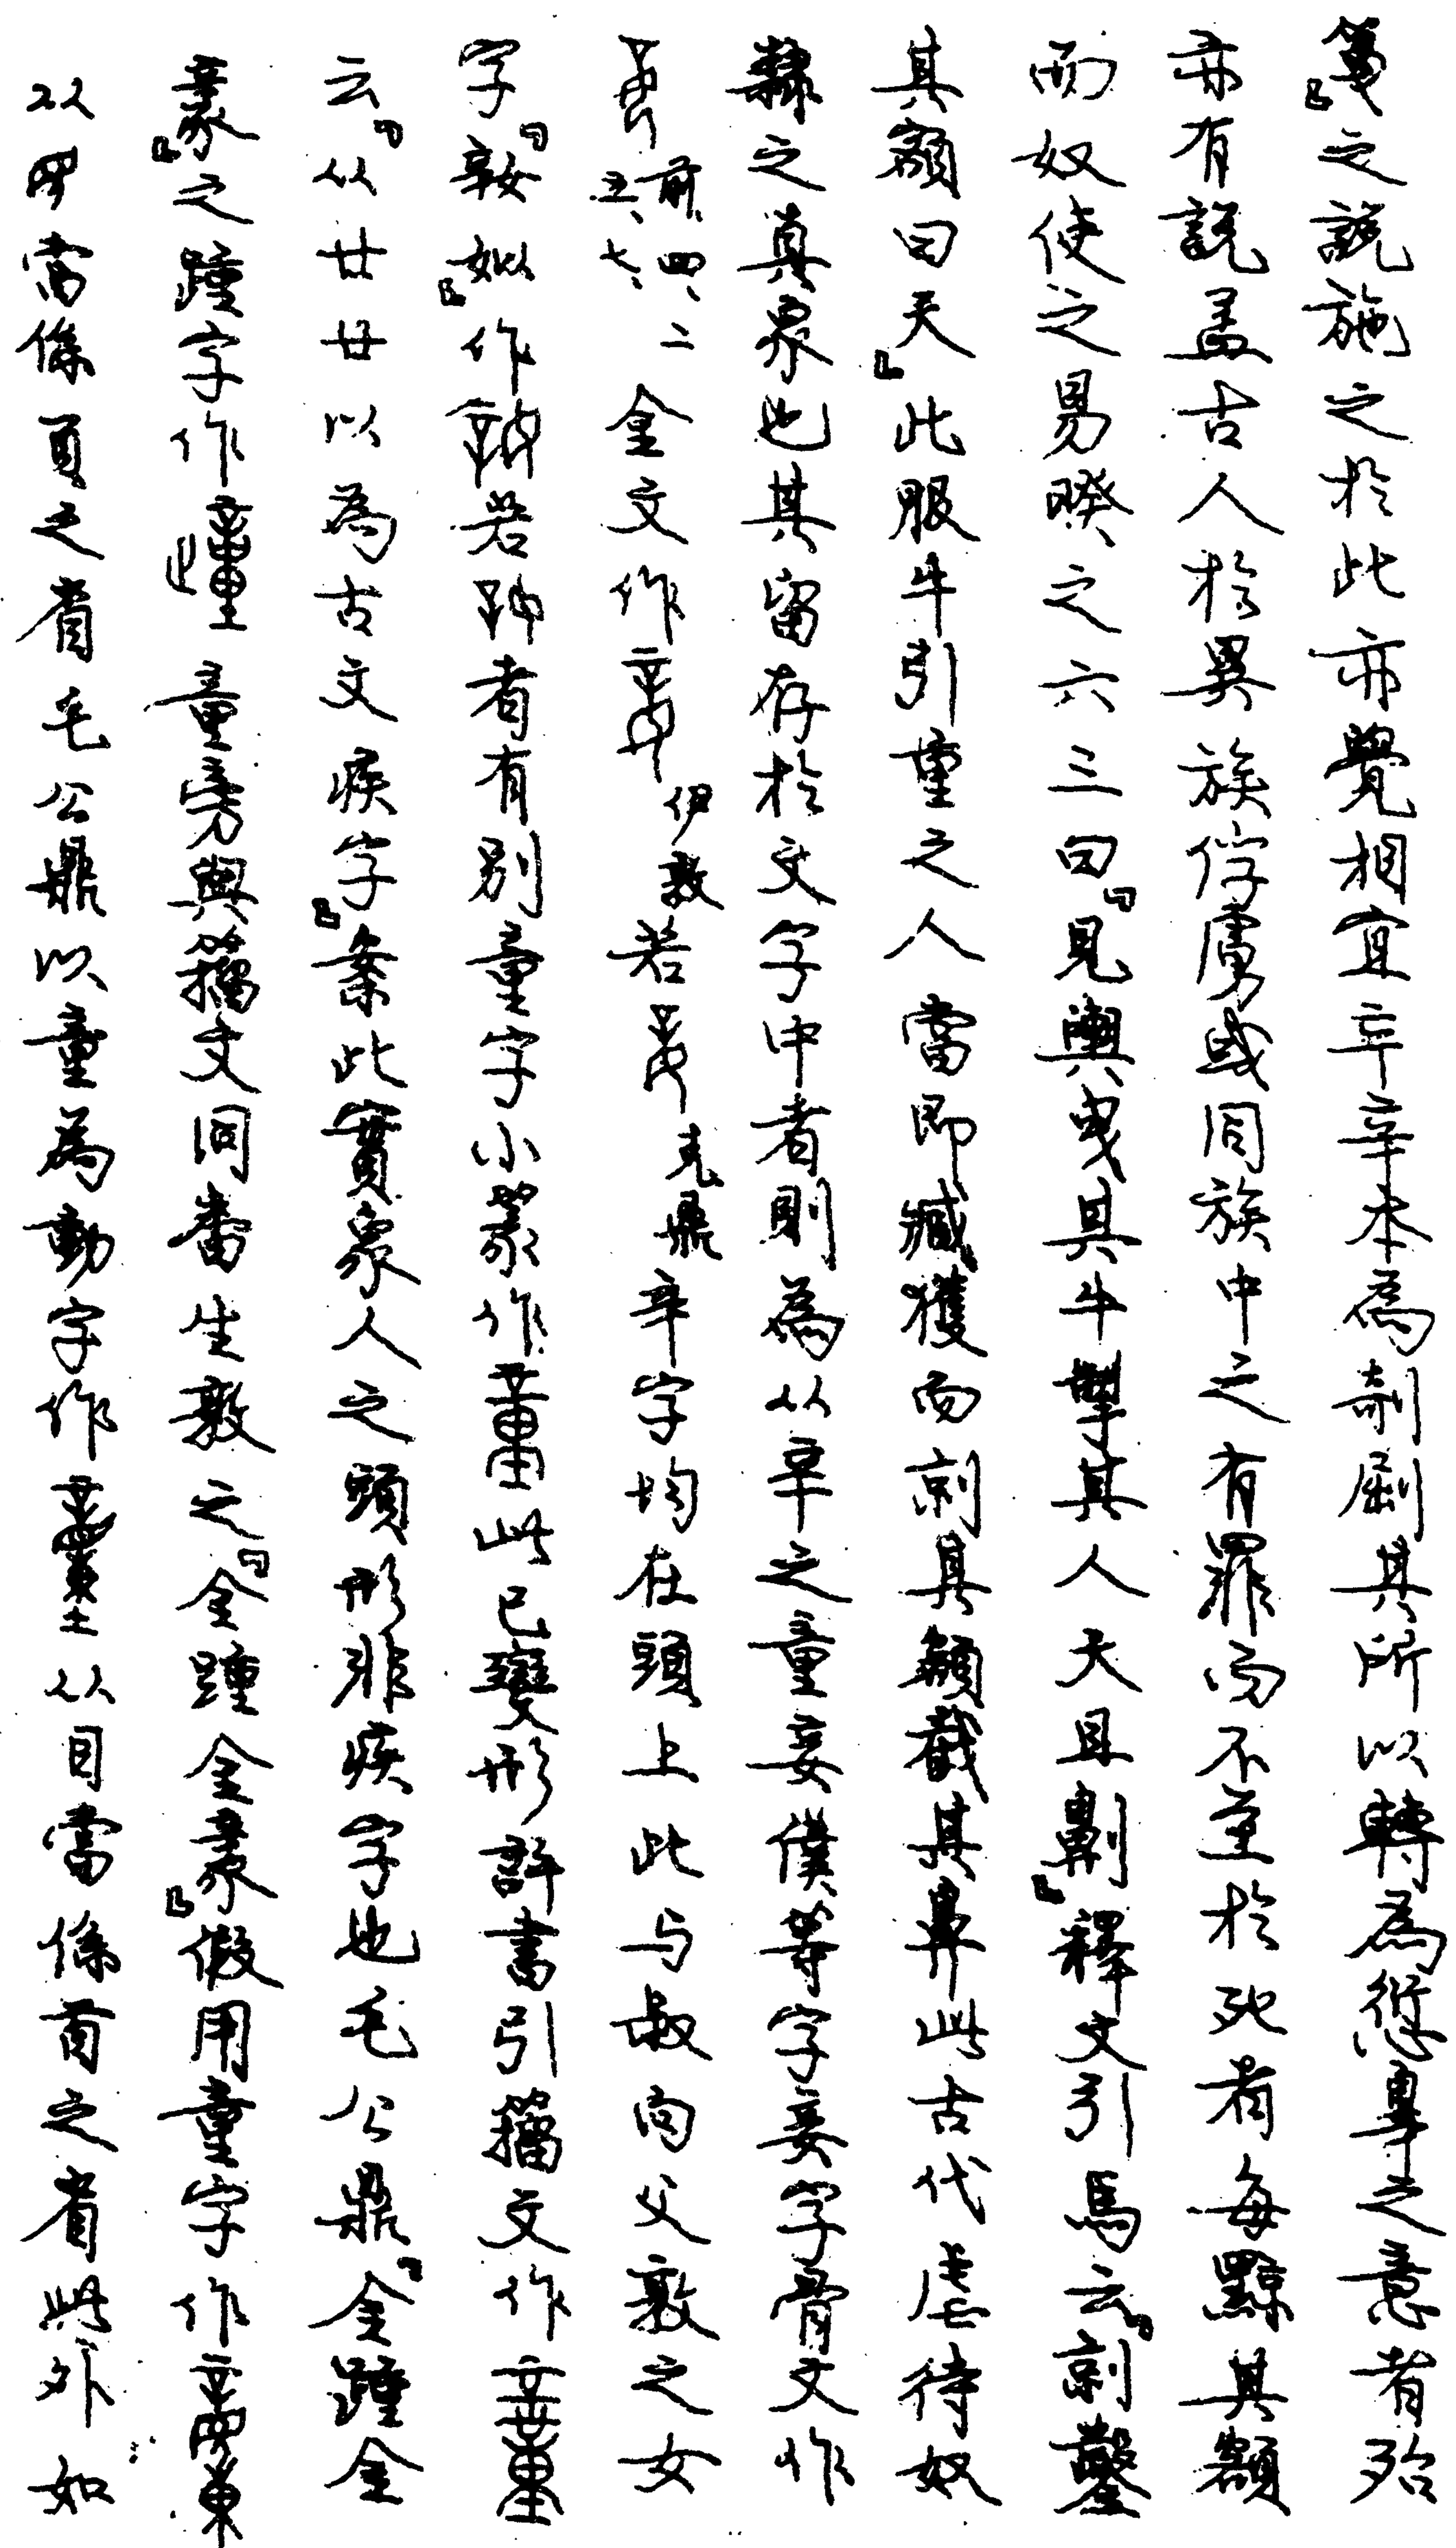 篗』之說施之於此亦覺相宜䇂辛本為剞劂其所以轉為愆辠之意者殆
亦有說蓋古人於異族俘虜或同族中之有罪而不至於死者每黥其額
而奴使之易睽之六三曰『見輿曳其牛掣其人天且劓』釋文引馬云『剠鑿
其額曰天』此服牛引重之人當即臧獲而剠其額截其鼻此古代虐待奴
隸之真象也其留存於文字中者則為从䇂之童妾僕等字妾字骨文作
前、四、二五、七、金文作 伊𣪘若 克鼎辛字均在頭上此与叔向父𣪘之女
字『㜪姒』作 若 者有別童字小篆作 此已變形許書引籀文作
云『从廿廿以為古文疾字』案此實象人之頭形非疾字也毛公鼎『金踵金
豙』之踵字作 童旁與籀文同番生𣪘之『金踵金豙』假用童字作
从 當係頁之省毛公鼎以童為動字作 从目當係首之省此外如